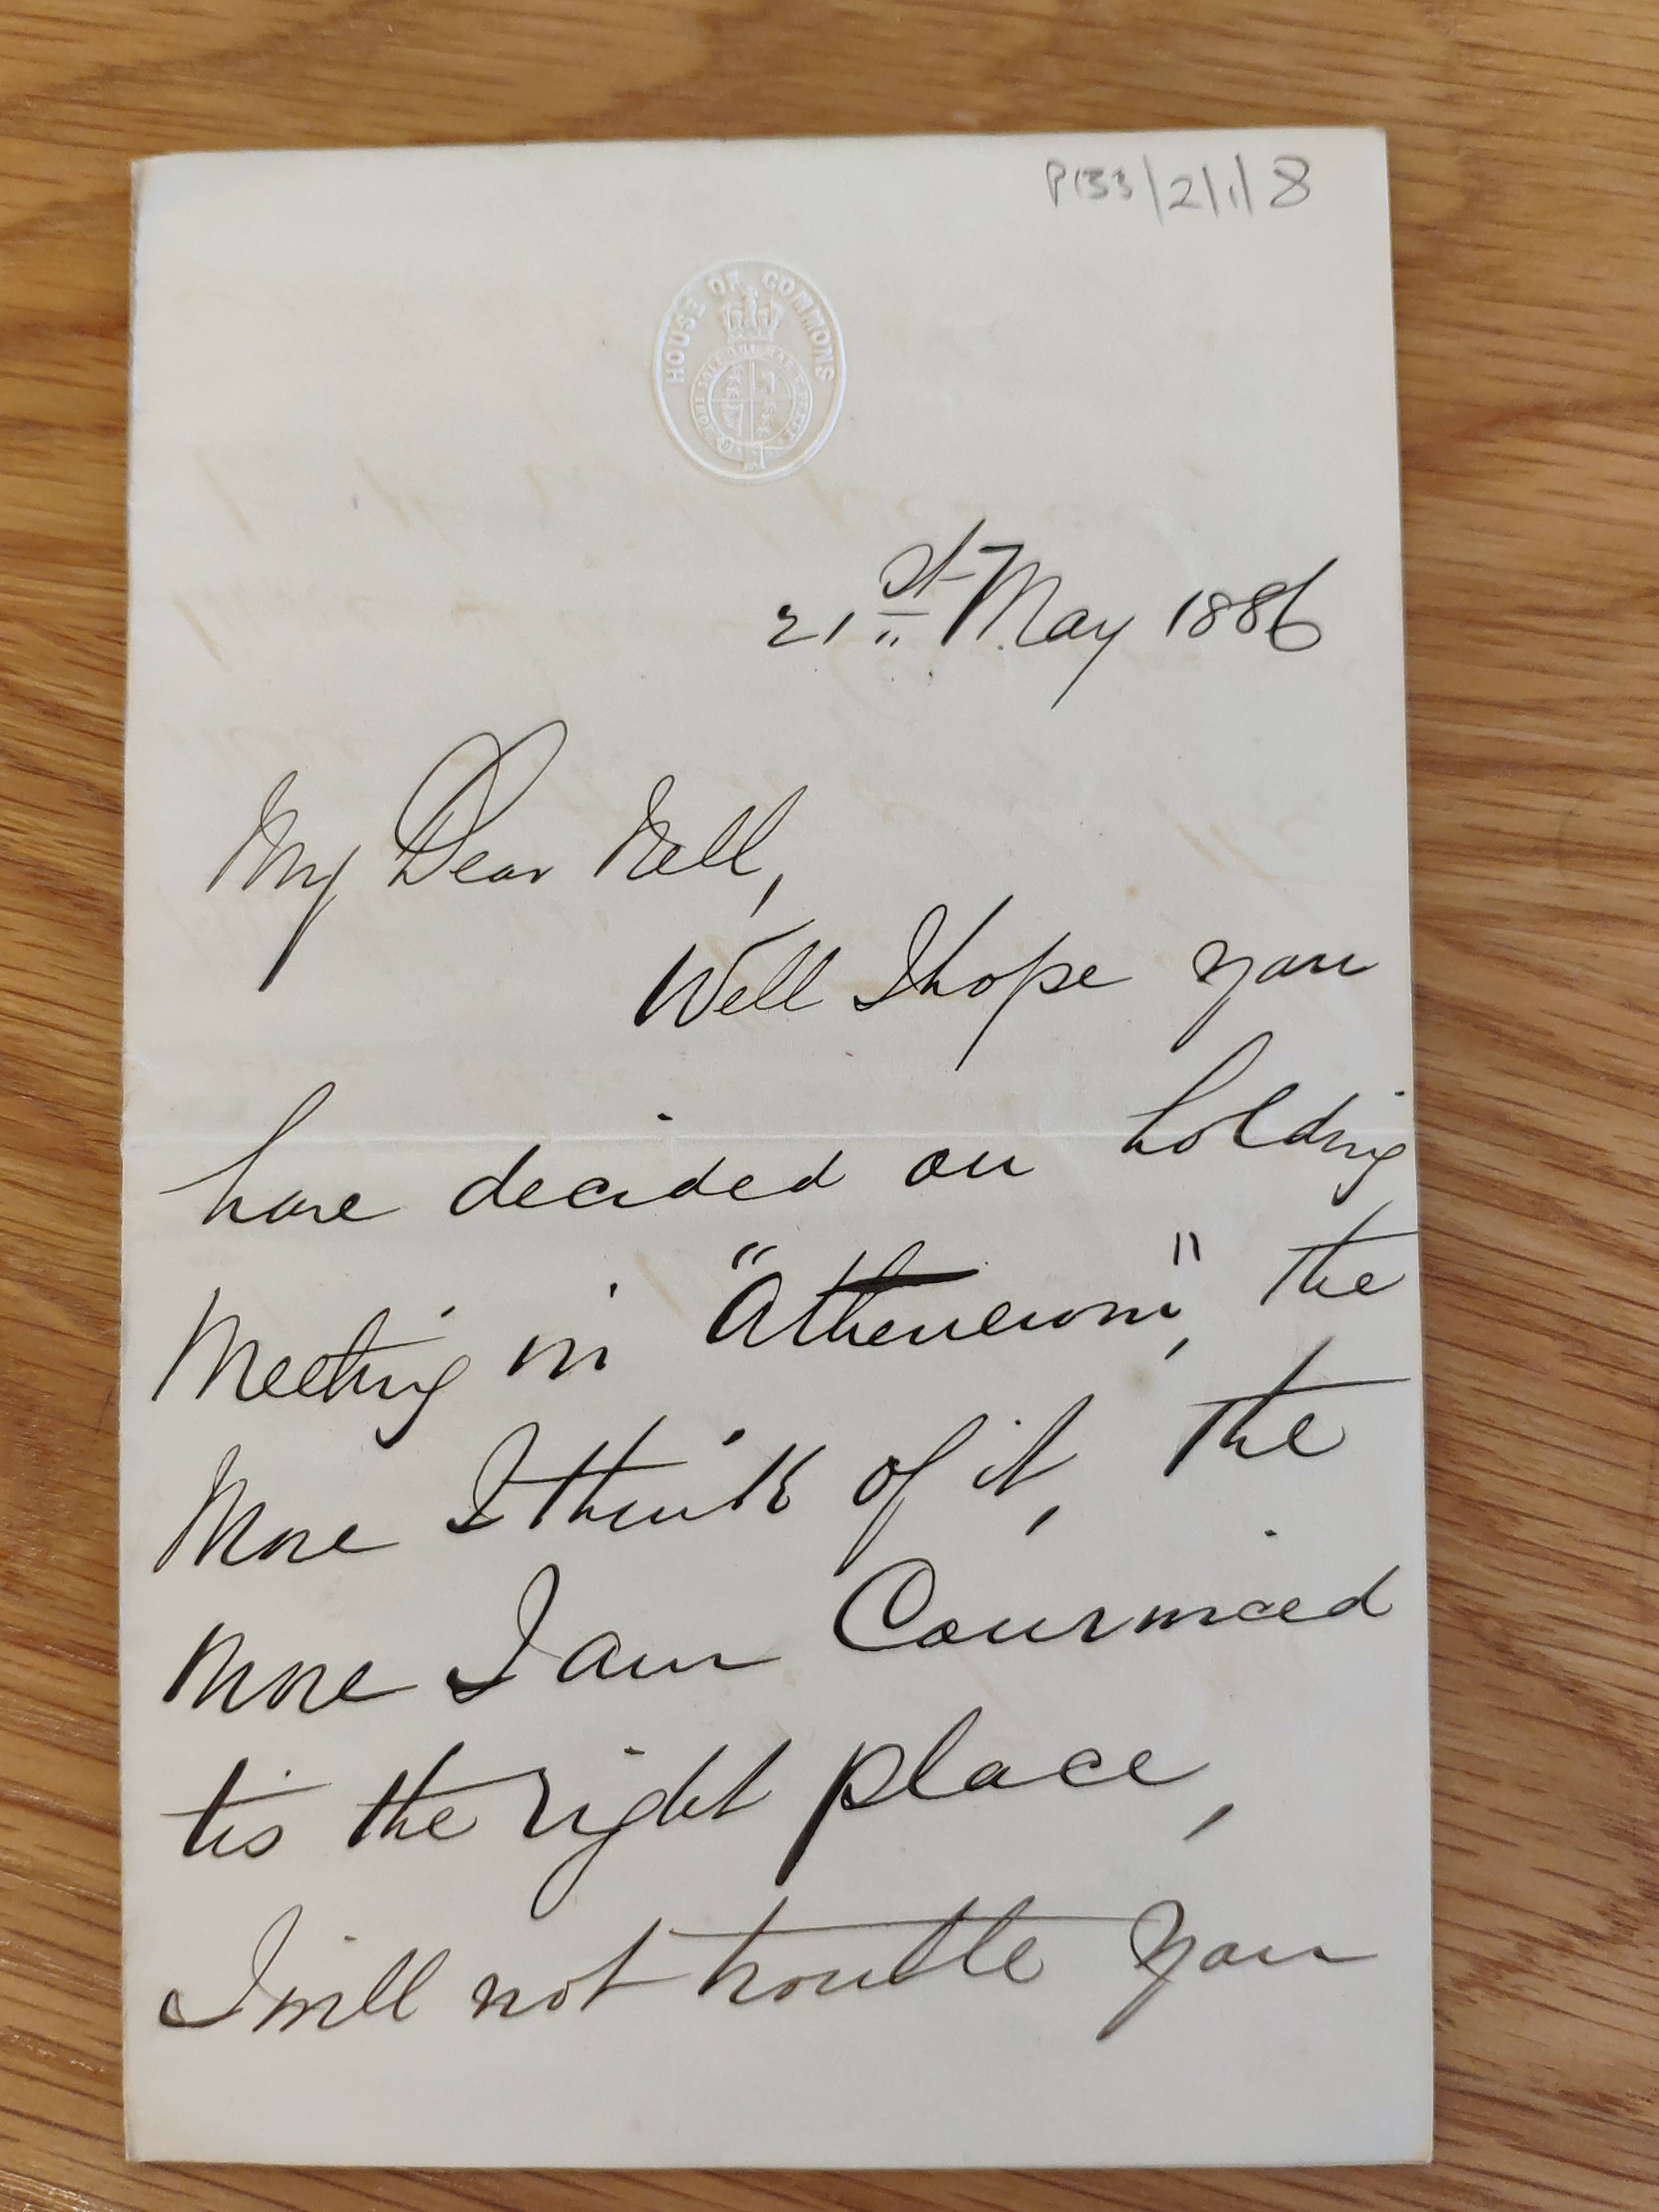 P133/2/1/8
HOUSE OF COMMONS
21st May 1886
My Dear Nell,
Well I hope you
have decided on holding
Meeting in "Atheneum", the
More I think of it, the
More I am Convinced
tis the right place,
I will not trouble you